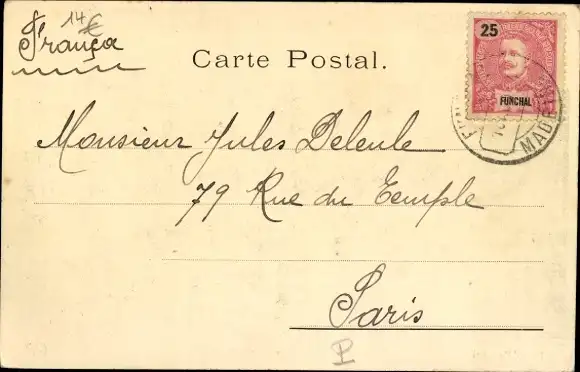 14€
França
Carte Postal.
25
FUNCHAL
Monsieur Jules Deleule
79 Rue du Temple
Paris
P